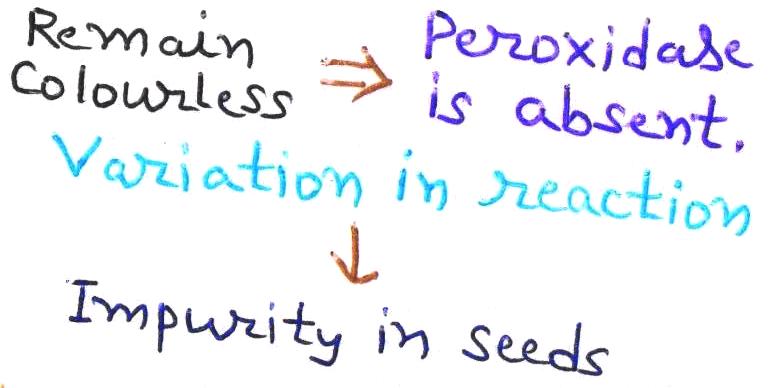 Remain Colourless ⇒ Peroxidase is absent.
Variation in reaction
↓
Impurity in seeds